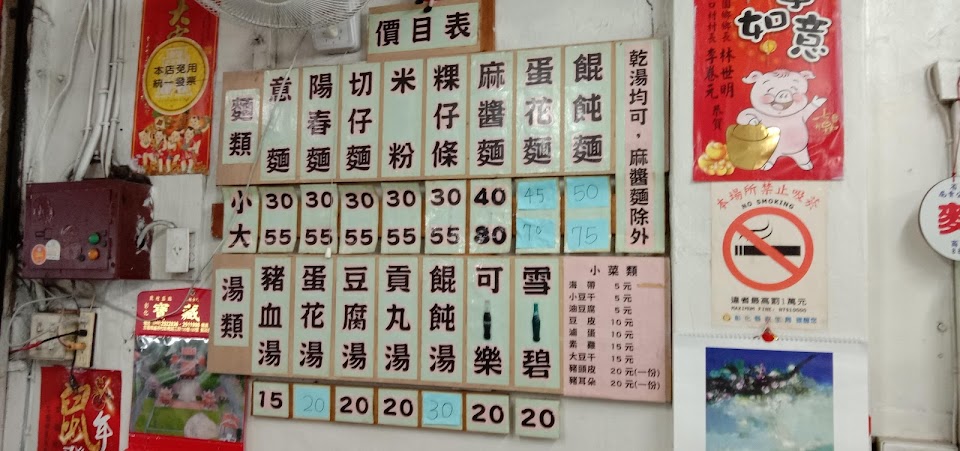 價目表
麵類
意麵
陽春麵
切仔麵
米粉
粿仔條
麻醬麵
蛋花麵
餛飩麵
乾湯均可，麻醬麵除外
小 30 30 30 30 30 40 45 50
大 55 55 55 55 55 80 70 75
湯類
豬血湯
蛋花湯
豆腐湯
貢丸湯
餛飩湯
可樂
雪碧
15 20 20 20 30 20 20
小菜類
海帶 5元
小豆干 5元
油豆腐 5元
豆皮 10元
滷蛋 10元
素雞 15元
大豆干 15元
豬頭皮 20元(一份)
豬耳朵 20元(一份)
本店免用
統一發票
如意
林世明
李春元 恭賀
本場所禁止吸菸
NO SMOKING
違者最高罰1萬元
麥
鼠年